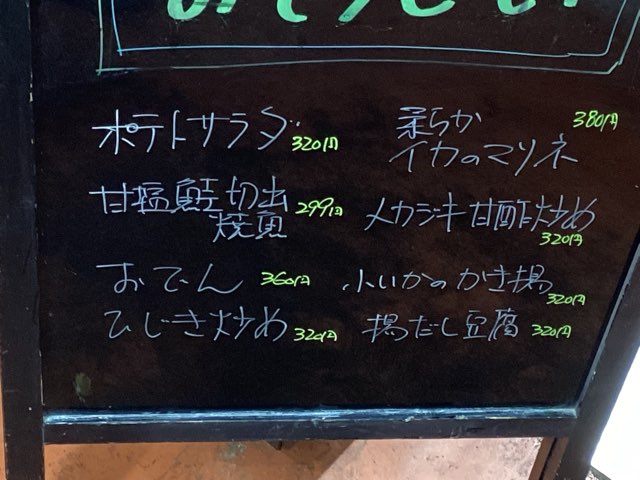 ポテトサラダ 320円
甘塩鮭切出
焼魚 299円
おでん 360円
ひじき炒め 320円
柔らか
イカのマリネ 380円
メカジキ甘酢炒め
320円
小いかのかき揚
320円
揚だし豆腐 320円